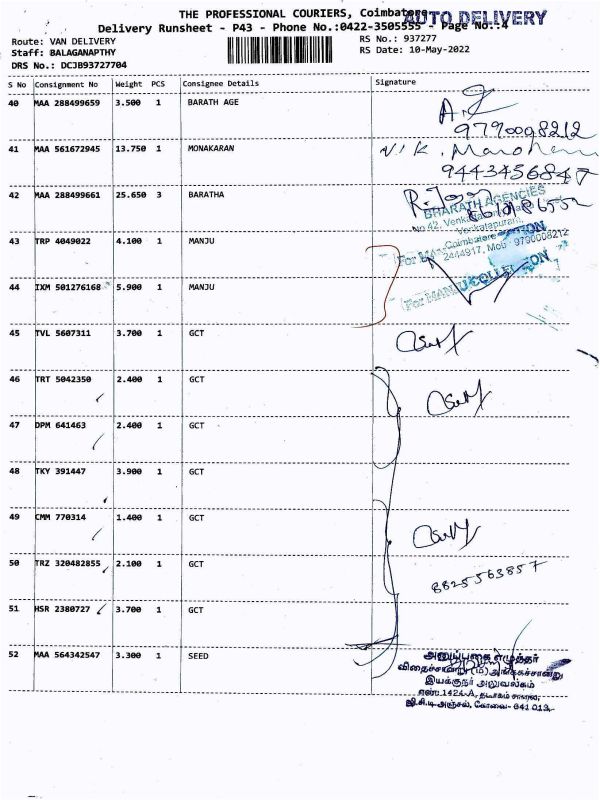 THE PROFESSIONAL COURIERS, Coimbatore
AUTO DELIVERY
Delivery Runsheet - P43 - Phone No.:0422-3505555 - Page No.:4
Route: VAN DELIVERY RS No.: 937277
Staff: BALAGANAPTHY RS Date: 10-May-2022
DRS No.: DCJB93727704
S No Consignment No Weight PCS Consignee Details Signature
40 MAA 288499659 3.500 1 BARATH AGE
9790098212
41 MAA 561672945 13.750 1 MONAKARAN
9443456847
42 MAA 288499661 25.650 3 BARATHA
BHARATH AGENCIES
Coimbatore
2444917, Mob : 9790008212
43 TRP 4049022 4.100 1 MANJU
44 IXM 501276168 5.900 1 MANJU
For MANJU COLLECTION
45 TVL 5607311 3.700 1 GCT
46 TRT 5042350 2.400 1 GCT
47 DPM 641463 2.400 1 GCT
48 TKY 391447 3.900 1 GCT
49 CMM 770314 1.400 1 GCT
50 TRZ 320482855 2.100 1 GCT
8825563857
51 HSR 2380727 3.700 1 GCT
52 MAA 564342547 3.300 1 SEED
இயக்குநர் அலுவலகம்
எண்: 1424-A, தடாகம் சாலை,
ஜி.சி.டி அஞ்சல், கோவை- 641 013.